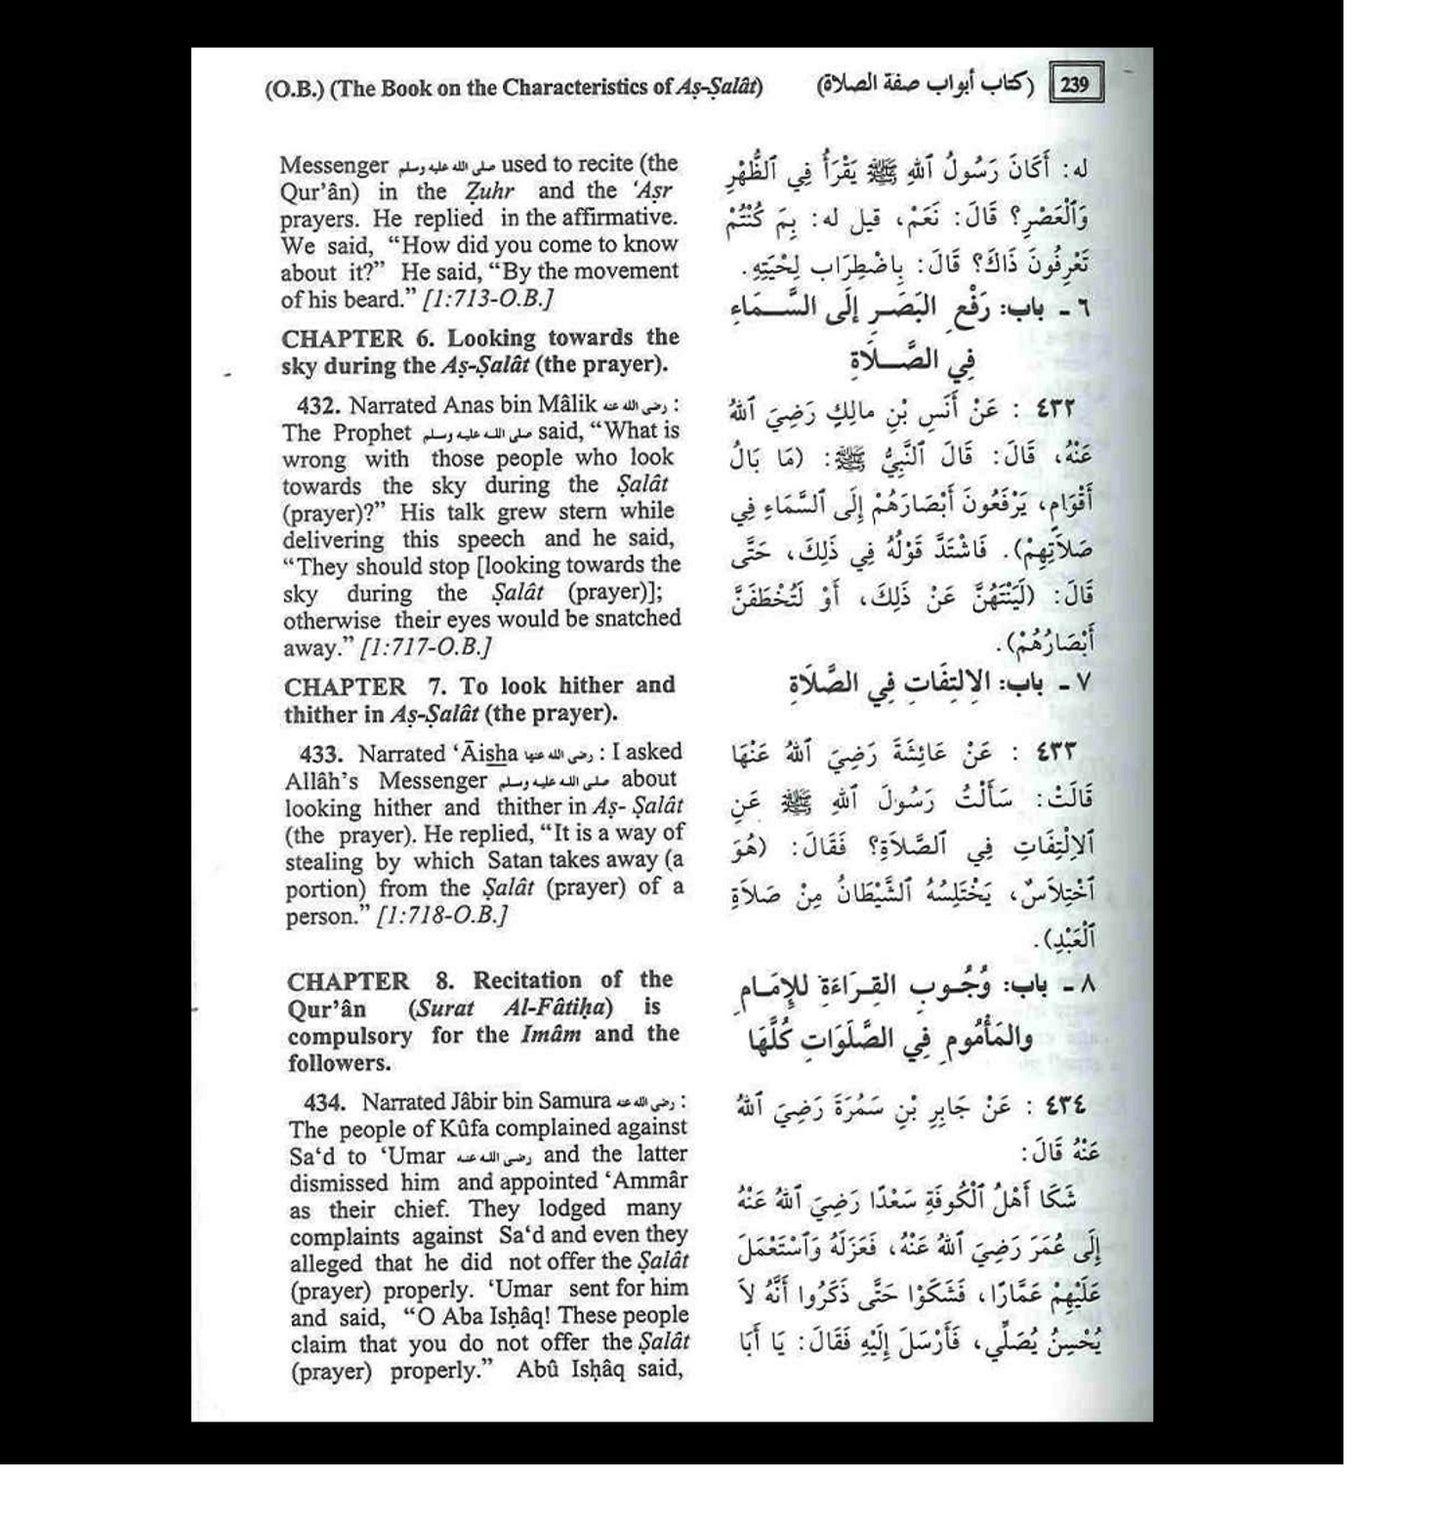 (O.B.) (The Book on the Characteristics of Aṣ-Ṣalât) (كتاب أبواب صفة الصلاة) 239
Messenger صلى الله عليه وسلم used to recite (the
Qur’ân) in the Ẓuhr and the ‘Aṣr
prayers. He replied in the affirmative.
We said, “How did you come to know
about it?” He said, “By the movement
of his beard.” [1:713-O.B.]
CHAPTER 6. Looking towards the
sky during the Aṣ-Ṣalât (the prayer).
432. Narrated Anas bin Mâlik رضي الله عنه :
The Prophet صلى الله عليه وسلم said, “What is
wrong with those people who look
towards the sky during the Ṣalât
(prayer)?” His talk grew stern while
delivering this speech and he said,
“They should stop [looking towards the
sky during the Ṣalât (prayer)];
otherwise their eyes would be snatched
away.” [1:717-O.B.]
CHAPTER 7. To look hither and
thither in Aṣ-Ṣalât (the prayer).
433. Narrated ‘Āisha رضي الله عنها : I asked
Allâh’s Messenger صلى الله عليه وسلم about
looking hither and thither in Aṣ- Ṣalât
(the prayer). He replied, “It is a way of
stealing by which Satan takes away (a
portion) from the Ṣalât (prayer) of a
person.” [1:718-O.B.]
CHAPTER 8. Recitation of the
Qur’ân (Surat Al-Fâtiḥa) is
compulsory for the Imâm and the
followers.
434. Narrated Jâbir bin Samura رضي الله عنه :
The people of Kûfa complained against
Sa‘d to ‘Umar رضي الله عنه and the latter
dismissed him and appointed ‘Ammâr
as their chief. They lodged many
complaints against Sa‘d and even they
alleged that he did not offer the Ṣalât
(prayer) properly. ‘Umar sent for him
and said, “O Aba Isḥâq! These people
claim that you do not offer the Ṣalât
(prayer) properly.” Abû Isḥâq said,
له: أَكَانَ رَسُولُ ٱللهِ ﷺ يَقْرَأُ فِي ٱلظُّهْرِ
وَٱلْعَصْرِ؟ قَالَ: نَعَمْ، قيل له: بِمَ كُنْتُمْ
تَعْرِفُونَ ذَاكَ؟ قَالَ: بِاضْطِرَاب لِحْيَتِهِ.
٦ - باب: رَفْعِ البَصَرِ إلَى السَّمَاءِ
فِي الصَّلَاةِ
٤٣٢ : عَنْ أَنَسِ بْنِ مالِكٍ رَضِيَ ٱللهُ
عَنْهُ، قَالَ: قَالَ ٱلنَّبِيُّ ﷺ: (مَا بَالُ
أَقْوَامٍ، يَرْفَعُونَ أَبْصَارَهُمْ إِلَى ٱلسَّمَاءِ فِي
صَلاَتِهِمْ). فَاشْتَدَّ قَوْلُهُ فِي ذَلِكَ، حَتَّى
قَالَ: (لَيَنْتَهُنَّ عَنْ ذَلِكَ، أَوْ لَتُخْطَفَنَّ
أَبْصَارُهُمْ).
٧ - باب: الِالتِفَاتِ فِي الصَّلَاةِ
٤٣٣ : عَنْ عَائِشَةَ رَضِيَ ٱللهُ عَنْهَا
قَالَتْ: سَأَلْتُ رَسُولَ ٱللهِ ﷺ عَنِ
ٱلاِلْتِفَاتِ فِي ٱلصَّلاَةِ؟ فَقَالَ: (هُوَ
ٱخْتِلاَسٌ، يَخْتَلِسُهُ ٱلشَّيْطَانُ مِنْ صَلاَةِ
ٱلْعَبْدِ).
٨ - باب: وُجُوبِ القِرَاءَةِ للإِمَامِ
والمَأْمُومِ فِي الصَّلَوَاتِ كُلِّهَا
٤٣٤ : عَنْ جَابِرِ بْنِ سَمُرَةَ رَضِيَ ٱللهُ
عَنْهُ قَالَ:
شَكَا أَهْلُ ٱلْكُوفَةِ سَعْدًا رَضِيَ ٱللهُ عَنْهُ
إِلَى عُمَرَ رَضِيَ ٱللهُ عَنْهُ، فَعَزَلَهُ وَٱسْتَعْمَلَ
عَلَيْهِمْ عَمَّارًا، فَشَكَوْا حَتَّى ذَكَرُوا أَنَّهُ لاَ
يُحْسِنُ يُصَلِّي، فَأَرْسَلَ إِلَيْهِ فَقَالَ: يَا أَبَا